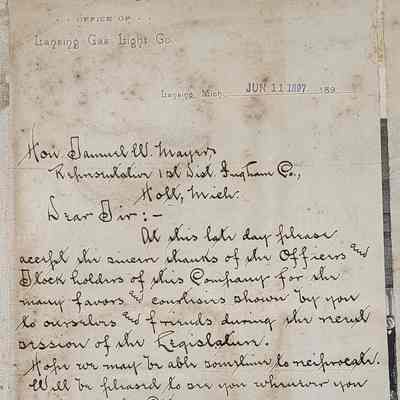 · · OFFICE OF · ·
Lansing Gas Light Co.
Lansing, Mich. JUN 11 1897 189
Hon. Samuel W. Mayer,
Representative 1st Dist Ingham Co.,
Holt, Mich.
Dear Sir:-
At this late day please
accept the sincere thanks of the Officers and
Stock holders of this Company for the
many favors and courtesies shown by you
to ourselves and friends during the recent
session of the Legislature.
Hope we may be able sometime to reciprocate.
Will be pleased to see you whenever you